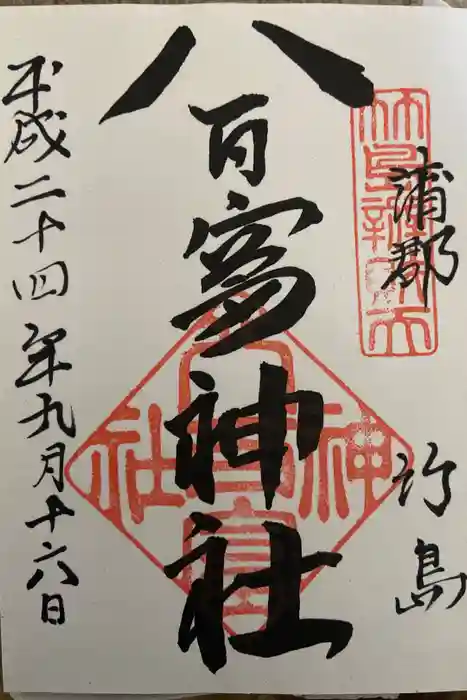 蒲郡
竹島
竹島辨財天
八百富神社
八百富神社
平成二十四年九月十六日